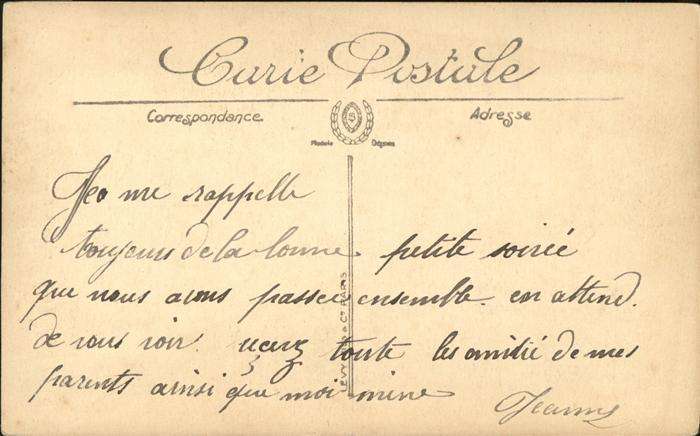 Carte Postale
Correspondance
Adresse
Modèle Déposé
Jeo me rappelle
toujours de la bonne petite soirée
que nous avons passee ensemble. en attend.
de vous voir. toute les amitié de mes
parents ainsi que moi mine
LEVY & Cie PARIS